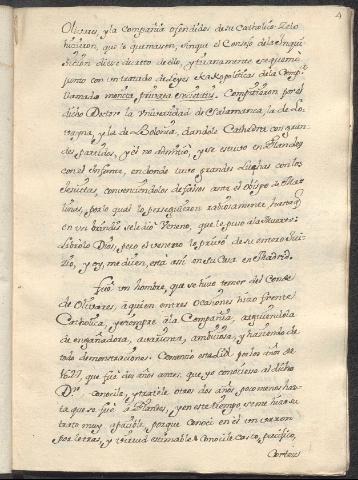 4
Olivares, y la Compañia ofendidos de su Catholico Zelo
hicieron, que lo quemasen, sinque el Consejo de la Inqui-
sicion diese de ello, y tiranamente se quemo
junto con un tratado de Leyes de la Comp.ª
llamado monita privata Compitieron por el
dicho Doctor la Universidad de Salamanca, la de Lo-
vayna, y la de Bolonia, dandole Cathedra con gran-
des partidos, y él no admitió, y se estuvo en Flandes
con el Infante, en donde tuvo grandes Luchas con los
Jesuitas, convenciendolos de falsos ante el obispo de
linas, por lo qual lo persiguieron rabiosamente, hasta q.
en un brindis se le dió Veneno, que lo puso a la Muerte.
Librólo Dios, pero el veneno lo privó de su entero Jui-
zio, y oy, me dicen, está asi en su Casa en Madrid.
Fué un hombre, que se hizo temer del Conde
de Olivares, à quien en tres Ocasiones hizo frente
Catholica, y siempre à la Compañia, arguiendola
de engañadora, avarienta, ambiciosa, y haciendo de
todo demonstraciones. Comenzó esta Lid por los años de
1627, que fué dos años antes, que yo conociese al dicho
D.r conocile, y tratéle otros dos años poco menos has-
ta que se fué à Flandes, y en este tiempo, se me hizo su
trato muy apacible, porque conocí en él un varon
por letras, y virtud estimable: Conocile casto, pacifico,
Cortes